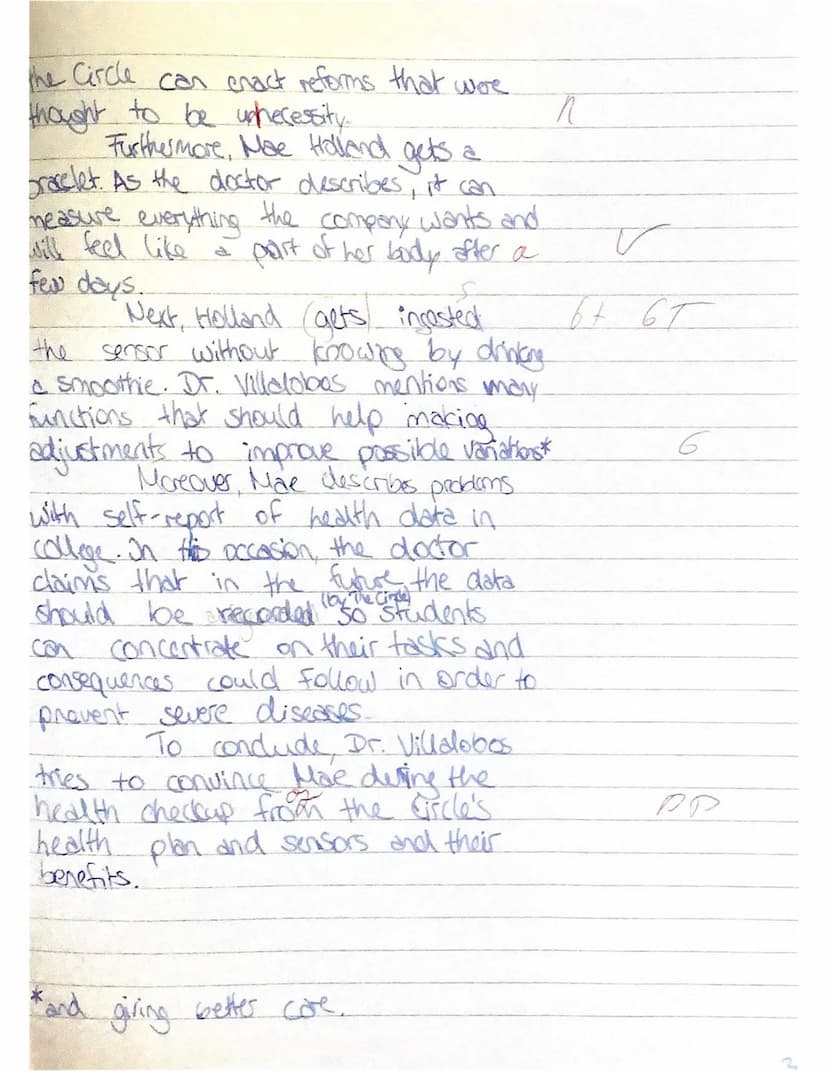 the Circle can enact reforms that were
thought to be unnecessity. n
Furthermore, Mae Holland gets a
bracelet. As the doctor describes, it can
measure everything the company wants and
will feel like a part of her body after a √
few days.
Next, Holland (gets) ingested s 6t 6T
the sensor without knowing by drinking
a smoothie. Dr. Villalobos mentions many
functions that should help making
adjustments to improve possible variations* G
Moreover, Mae describes problems
with self-report of health data in
college. In this occasion, the doctor
claims that in the future, the data
should be recorded (by The Circle) so students
can concentrate on their tasks and
consequences could follow in order to
prevent severe diseases.
To conclude, Dr. Villalobos
tries to convince Mae during the
health checkup from of the Circle's PP
health plan and sensors and their
benefits.
*and giving better care.
2